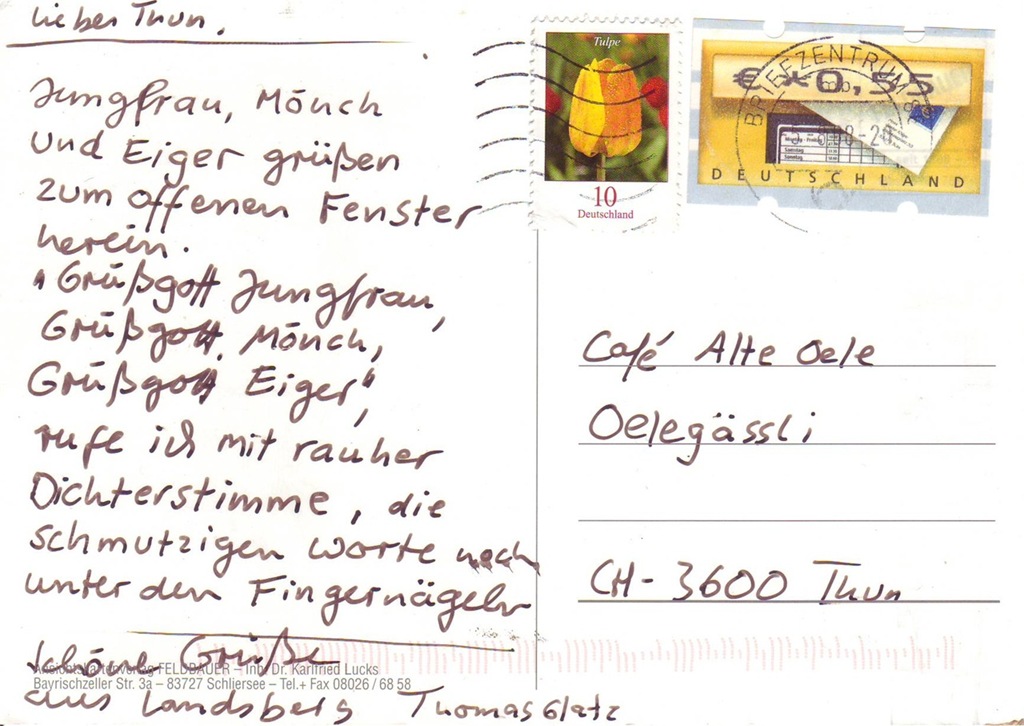 Lieber Thun,
Jungfrau, Mönch
und Eiger grüßen
zum offenen Fenster
herein.
"Grüßgott Jungfrau,
Grüßgott Mönch,
Grüßgott Eiger",
rufe ich mit rauher
Dichterstimme, die
schmutzigen Worte noch
unter den Fingernägeln
schöne Grüße
aus Landsberg Thomas Glatz
Ansichtskartenverlag FELDBAUER – Inh. Dr. Karlfried Lucks
Bayrischzeller Str. 3a – 83727 Schliersee – Tel.+ Fax 08026 / 68 58
Tulpe
10
Deutschland
BRIEFZENTRUM
€ 0,55
DEUTSCHLAND
Café Alte Oele
Oelegässli
CH- 3600 Thun